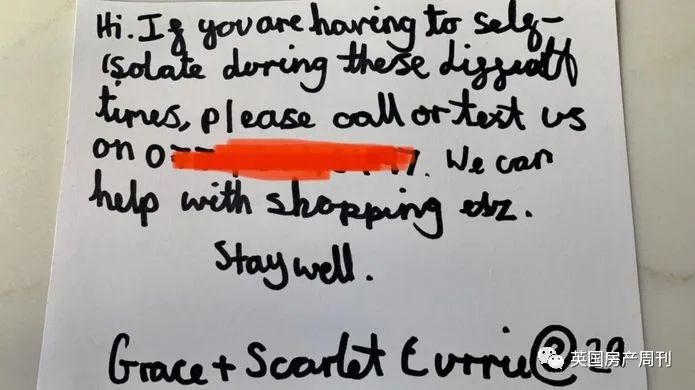 Hi. If you are having to self-
isolate during these difficult
times, please call or text us
on 07
. We can
help with shopping etz.
Stay well.
Grace + Scarlet Currie @ 29
英国房产周刊